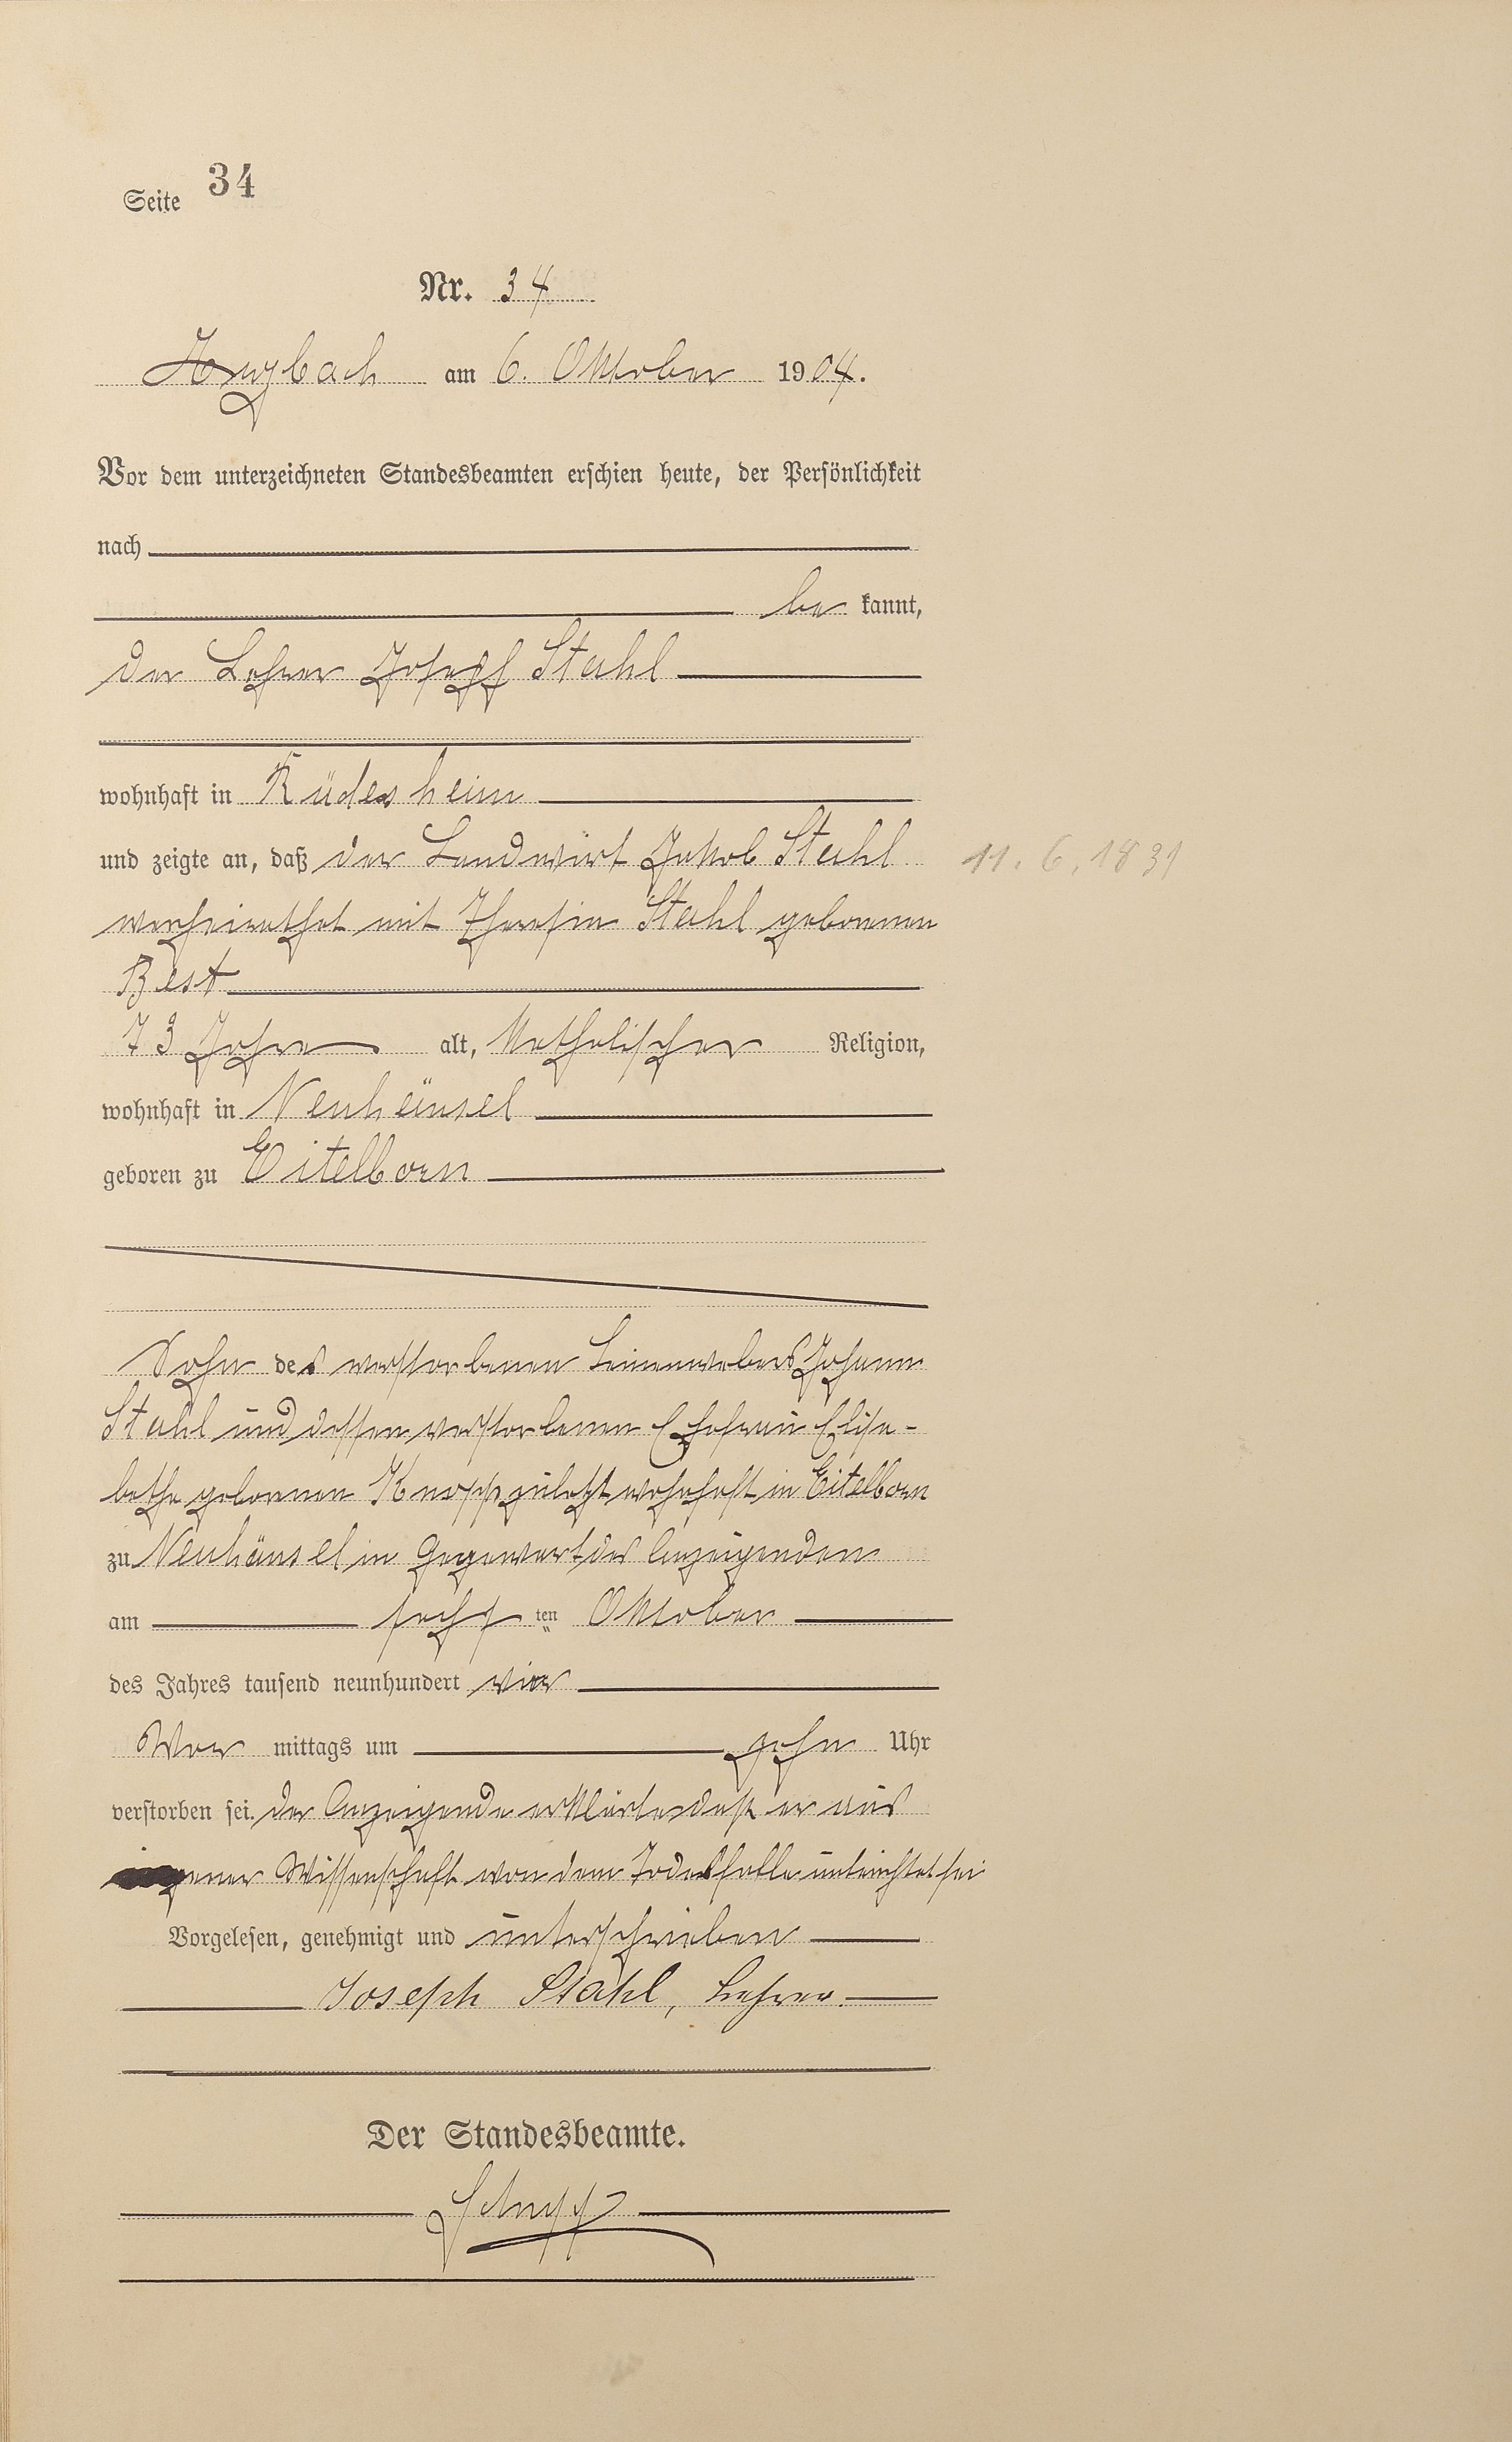 Seite 34
Nr. 34
am 6. Oktober 1904.
Vor dem unterzeichneten Standesbeamten erschien heute, der Persönlichkeit
nach
be kannt,
der Lehrer Josepf Stahl
wohnhaft in Rüdesheim
und zeigte an, daß der Landwirt Jakob Stahl 11. 6. 1831
verheirathet mit Theresia Stahl geborenen
Best
73 Jahre alt, Katholischer Religion,
wohnhaft in Neuhäusel
geboren zu Eitelborn
Sohn des verstorbenen Leinenwebers Johann
Stahl und dessen verstorbenen Ehefrau Elisa-
betha geborenen Knopp zuletzt wohnhaft in Eitelborn
zu Neuhäusel in Gegenwart des Anzeigenden
am sechsten Oktober
des Jahres tausend neunhundert vier
Vor mittags um zehn Uhr
verstorben sei. der Anzeigende erklärte daß er aus
eigener Wissenschaft von dem Todesfalle unterichtet sei
Vorgelesen, genehmigt und unterschrieben
Joseph Stahl, Lehrer.
Der Standesbeamte.